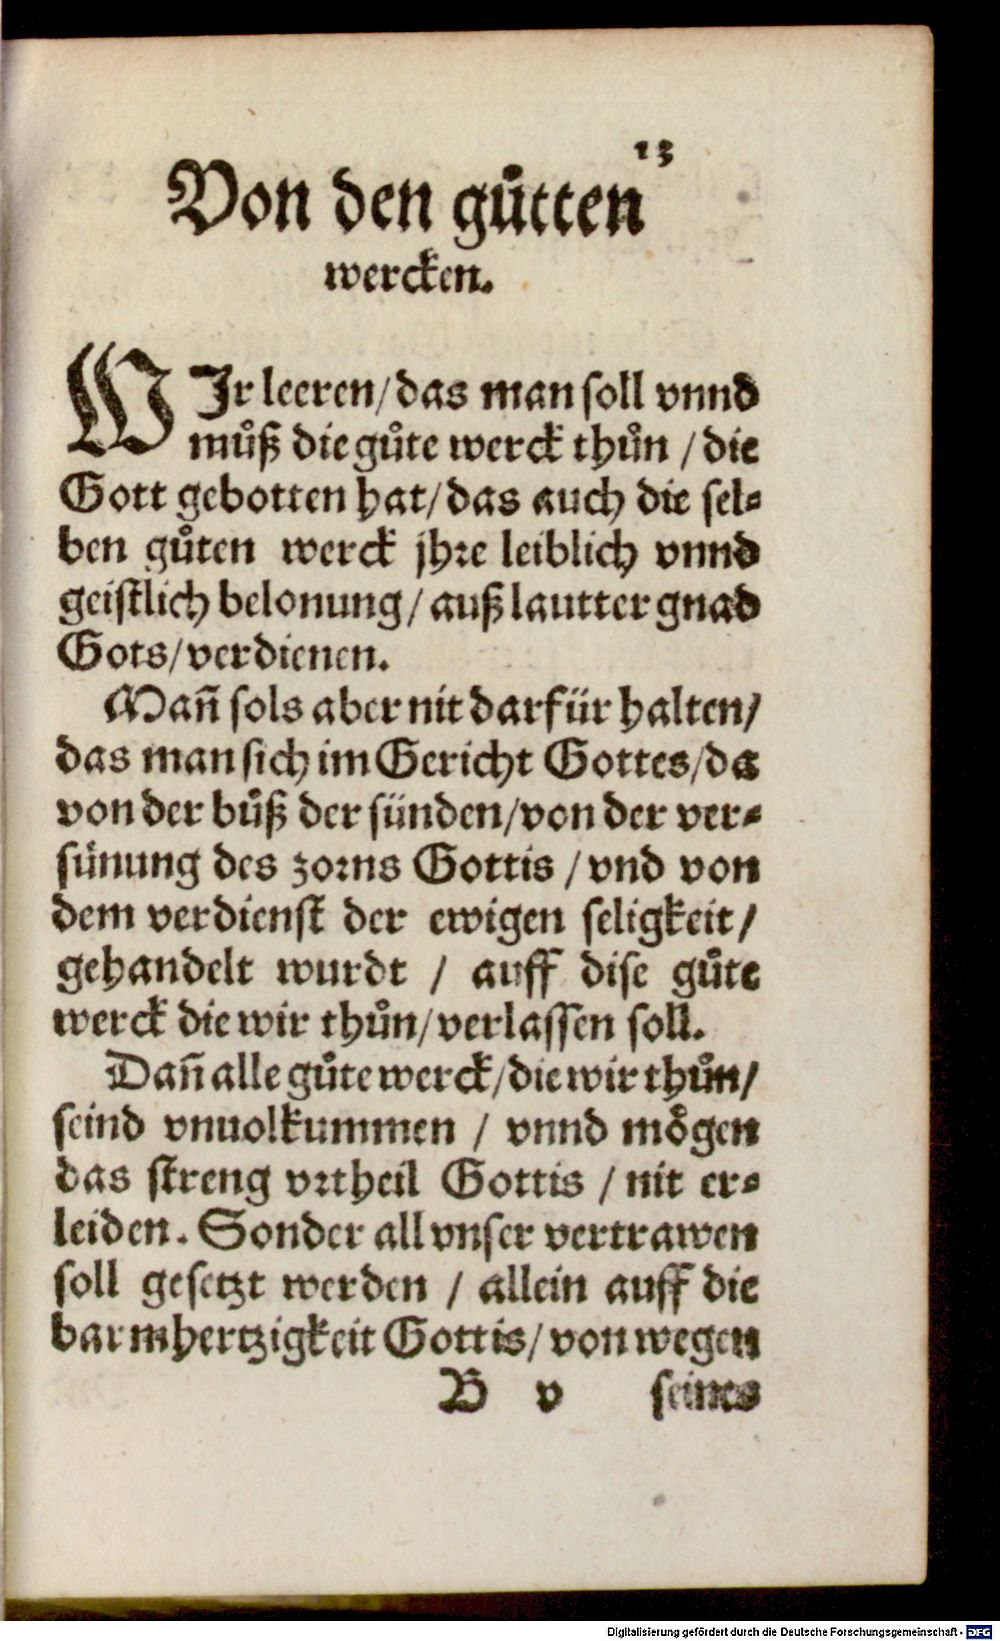 13
Von den guͦtten
wercken.
WIr leeren/das man soll vnnd
muͦß die guͦte werck thuͦn / die
Gott gebotten hat/das auch die sel⸗
ben guͦten werck jhre leiblich vnnd
geistlich belonung/ auß lautter gnad
Gots/verdienen.
Mañ sols aber nit darfür halten/
das man sich im Gericht Gottes/da
von der buͦß der sünden/von der ver⸗
sünung des zorns Gottis / vnd von
dem verdienst der ewigen seligkeit/
gehandelt wurdt / auff dise guͦte
werck die wir thuͦn/verlassen soll.
Dañ alle guͦte werck/die wir thuͦn/
seind vnuolkummen / vnnd moͤgen
das streng vrtheil Gottis / nit er⸗
leiden. Sonder all vnser vertrawen
soll gesetzt werden / allein auff die
barmhertzigkeit Gottis/ von wegen
B v seines
Digitalisierung gefördert durch die Deutsche Forschungsgemeinschaft - DFG